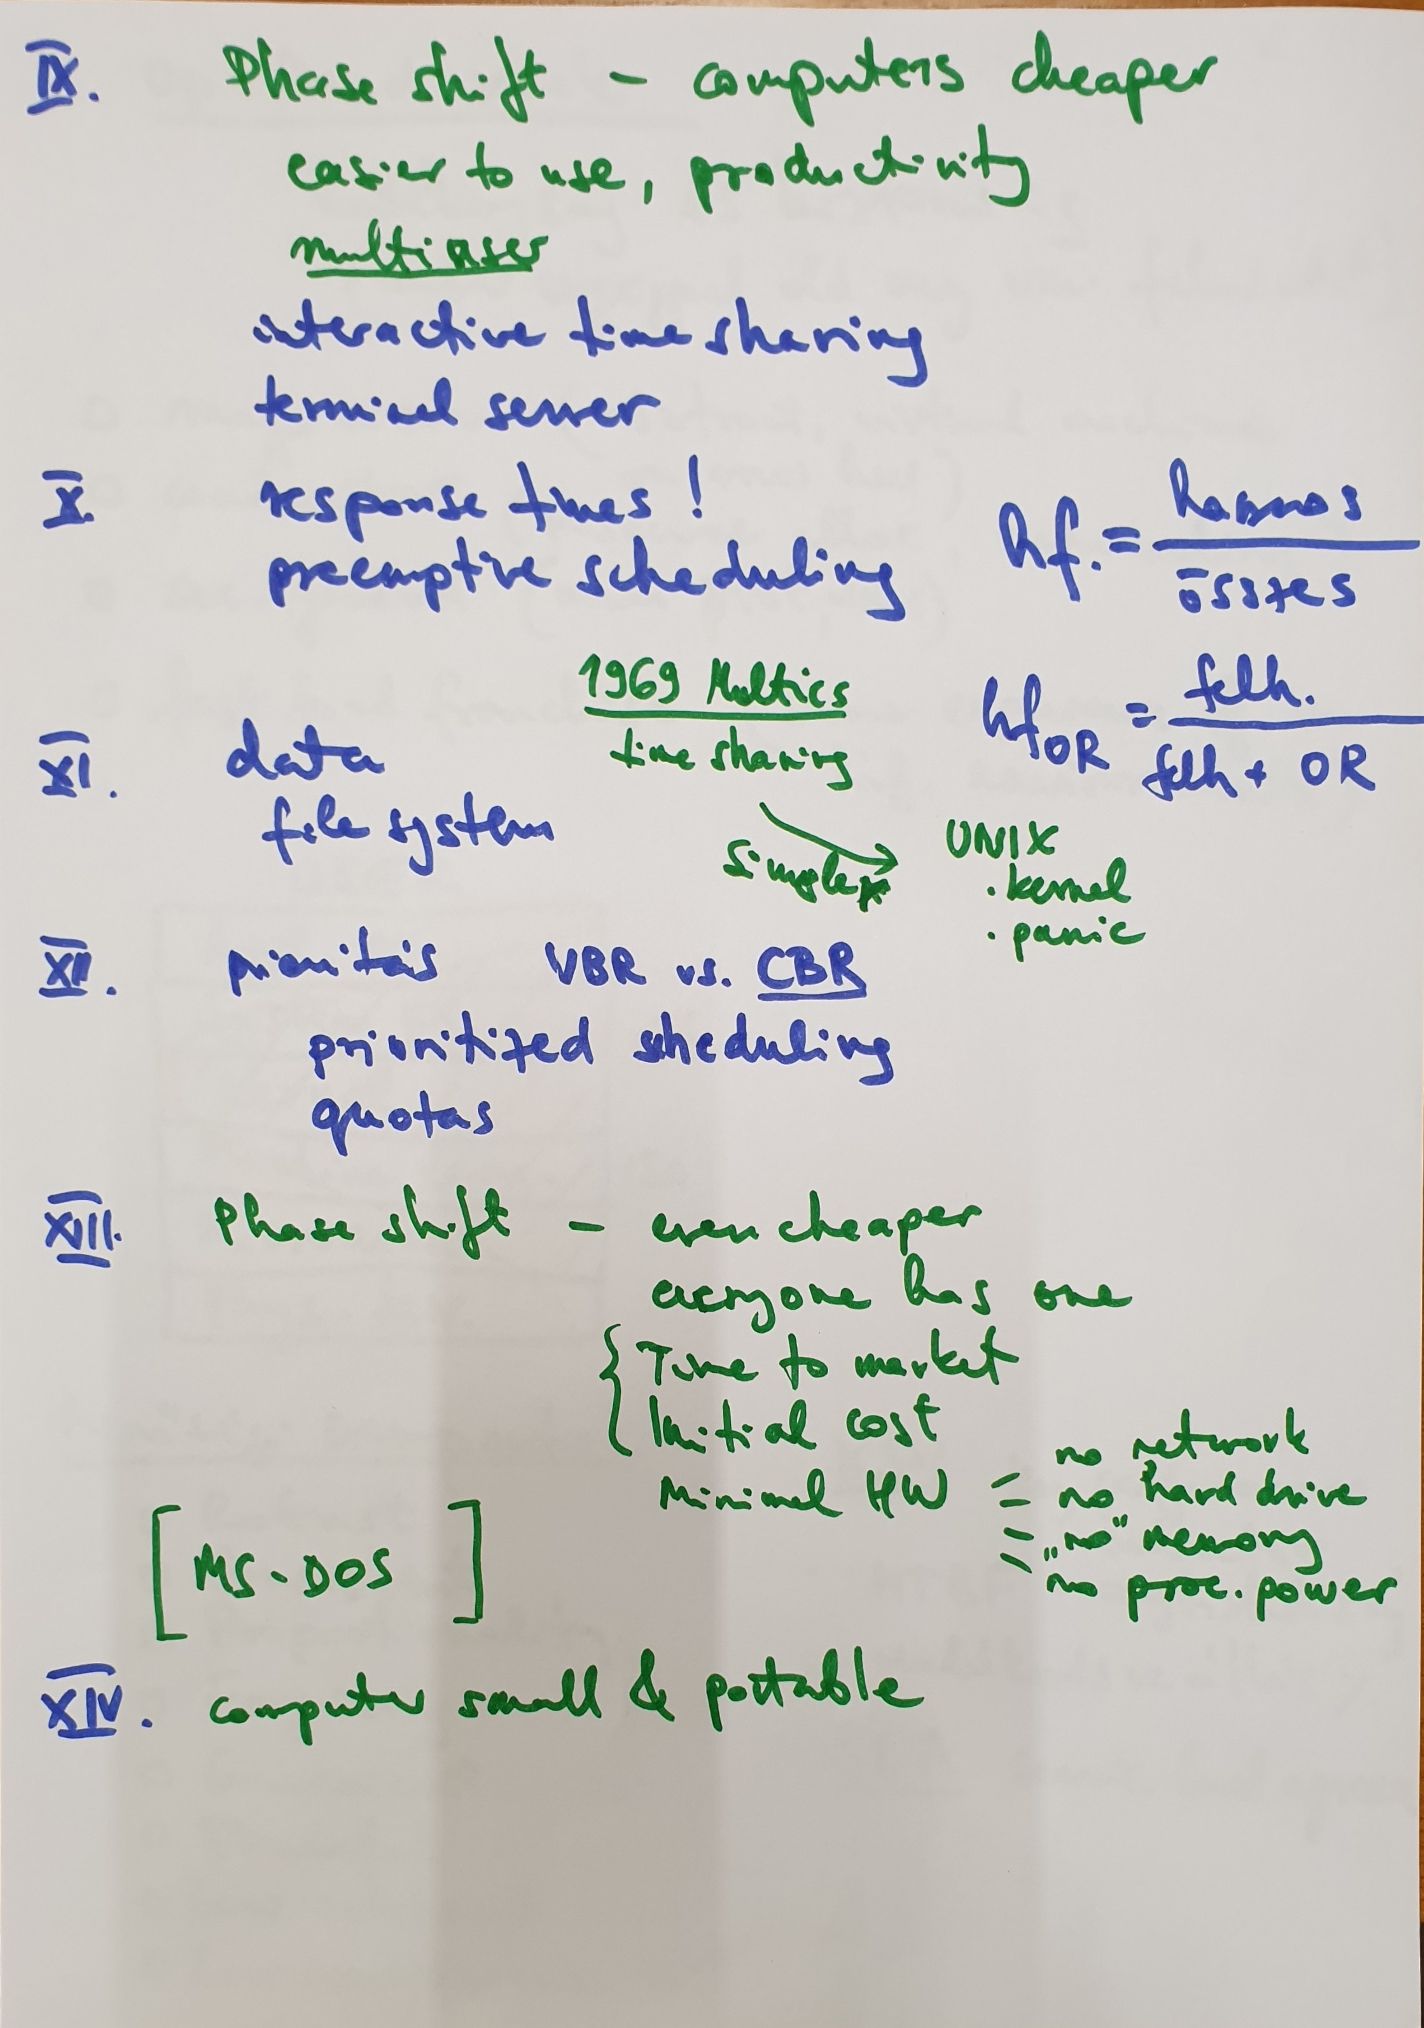 IX. Phase shift - computers cheaper
easier to use, productivity
multiuser
interactive time sharing
terminal server
X. response times!
preemptive scheduling
hf. = hasznos / összes
hf OR = felh. / felh + OR
1969 Multics
time sharing
XI. data
file system
simpler
UNIX
. kernel
. panic
XII. prioritás VBR vs. CBR
prioritized scheduling
quotas
XIII. Phase shift - even cheaper
everyone has one
{ Time to market
Initial cost
Minimal HW
no network
no hard drive
„no" memory
no proc. power
[MS-DOS]
XIV. computer small & portable